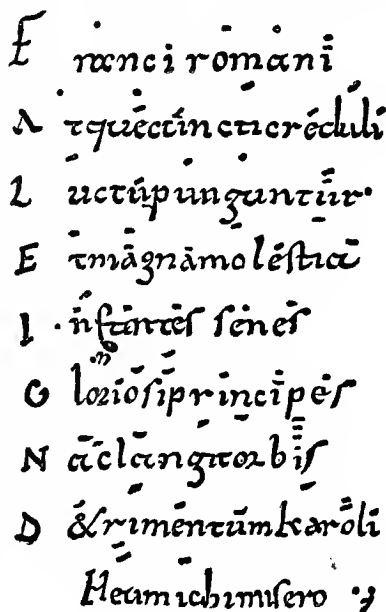 F ranci romani
A tque cuncti creduli
L uctu punguntur·
E t magna molestia
I nfantes senes
G loriosi principes
N a clangit orbis
D &rimentum karoli
Heu michi misero